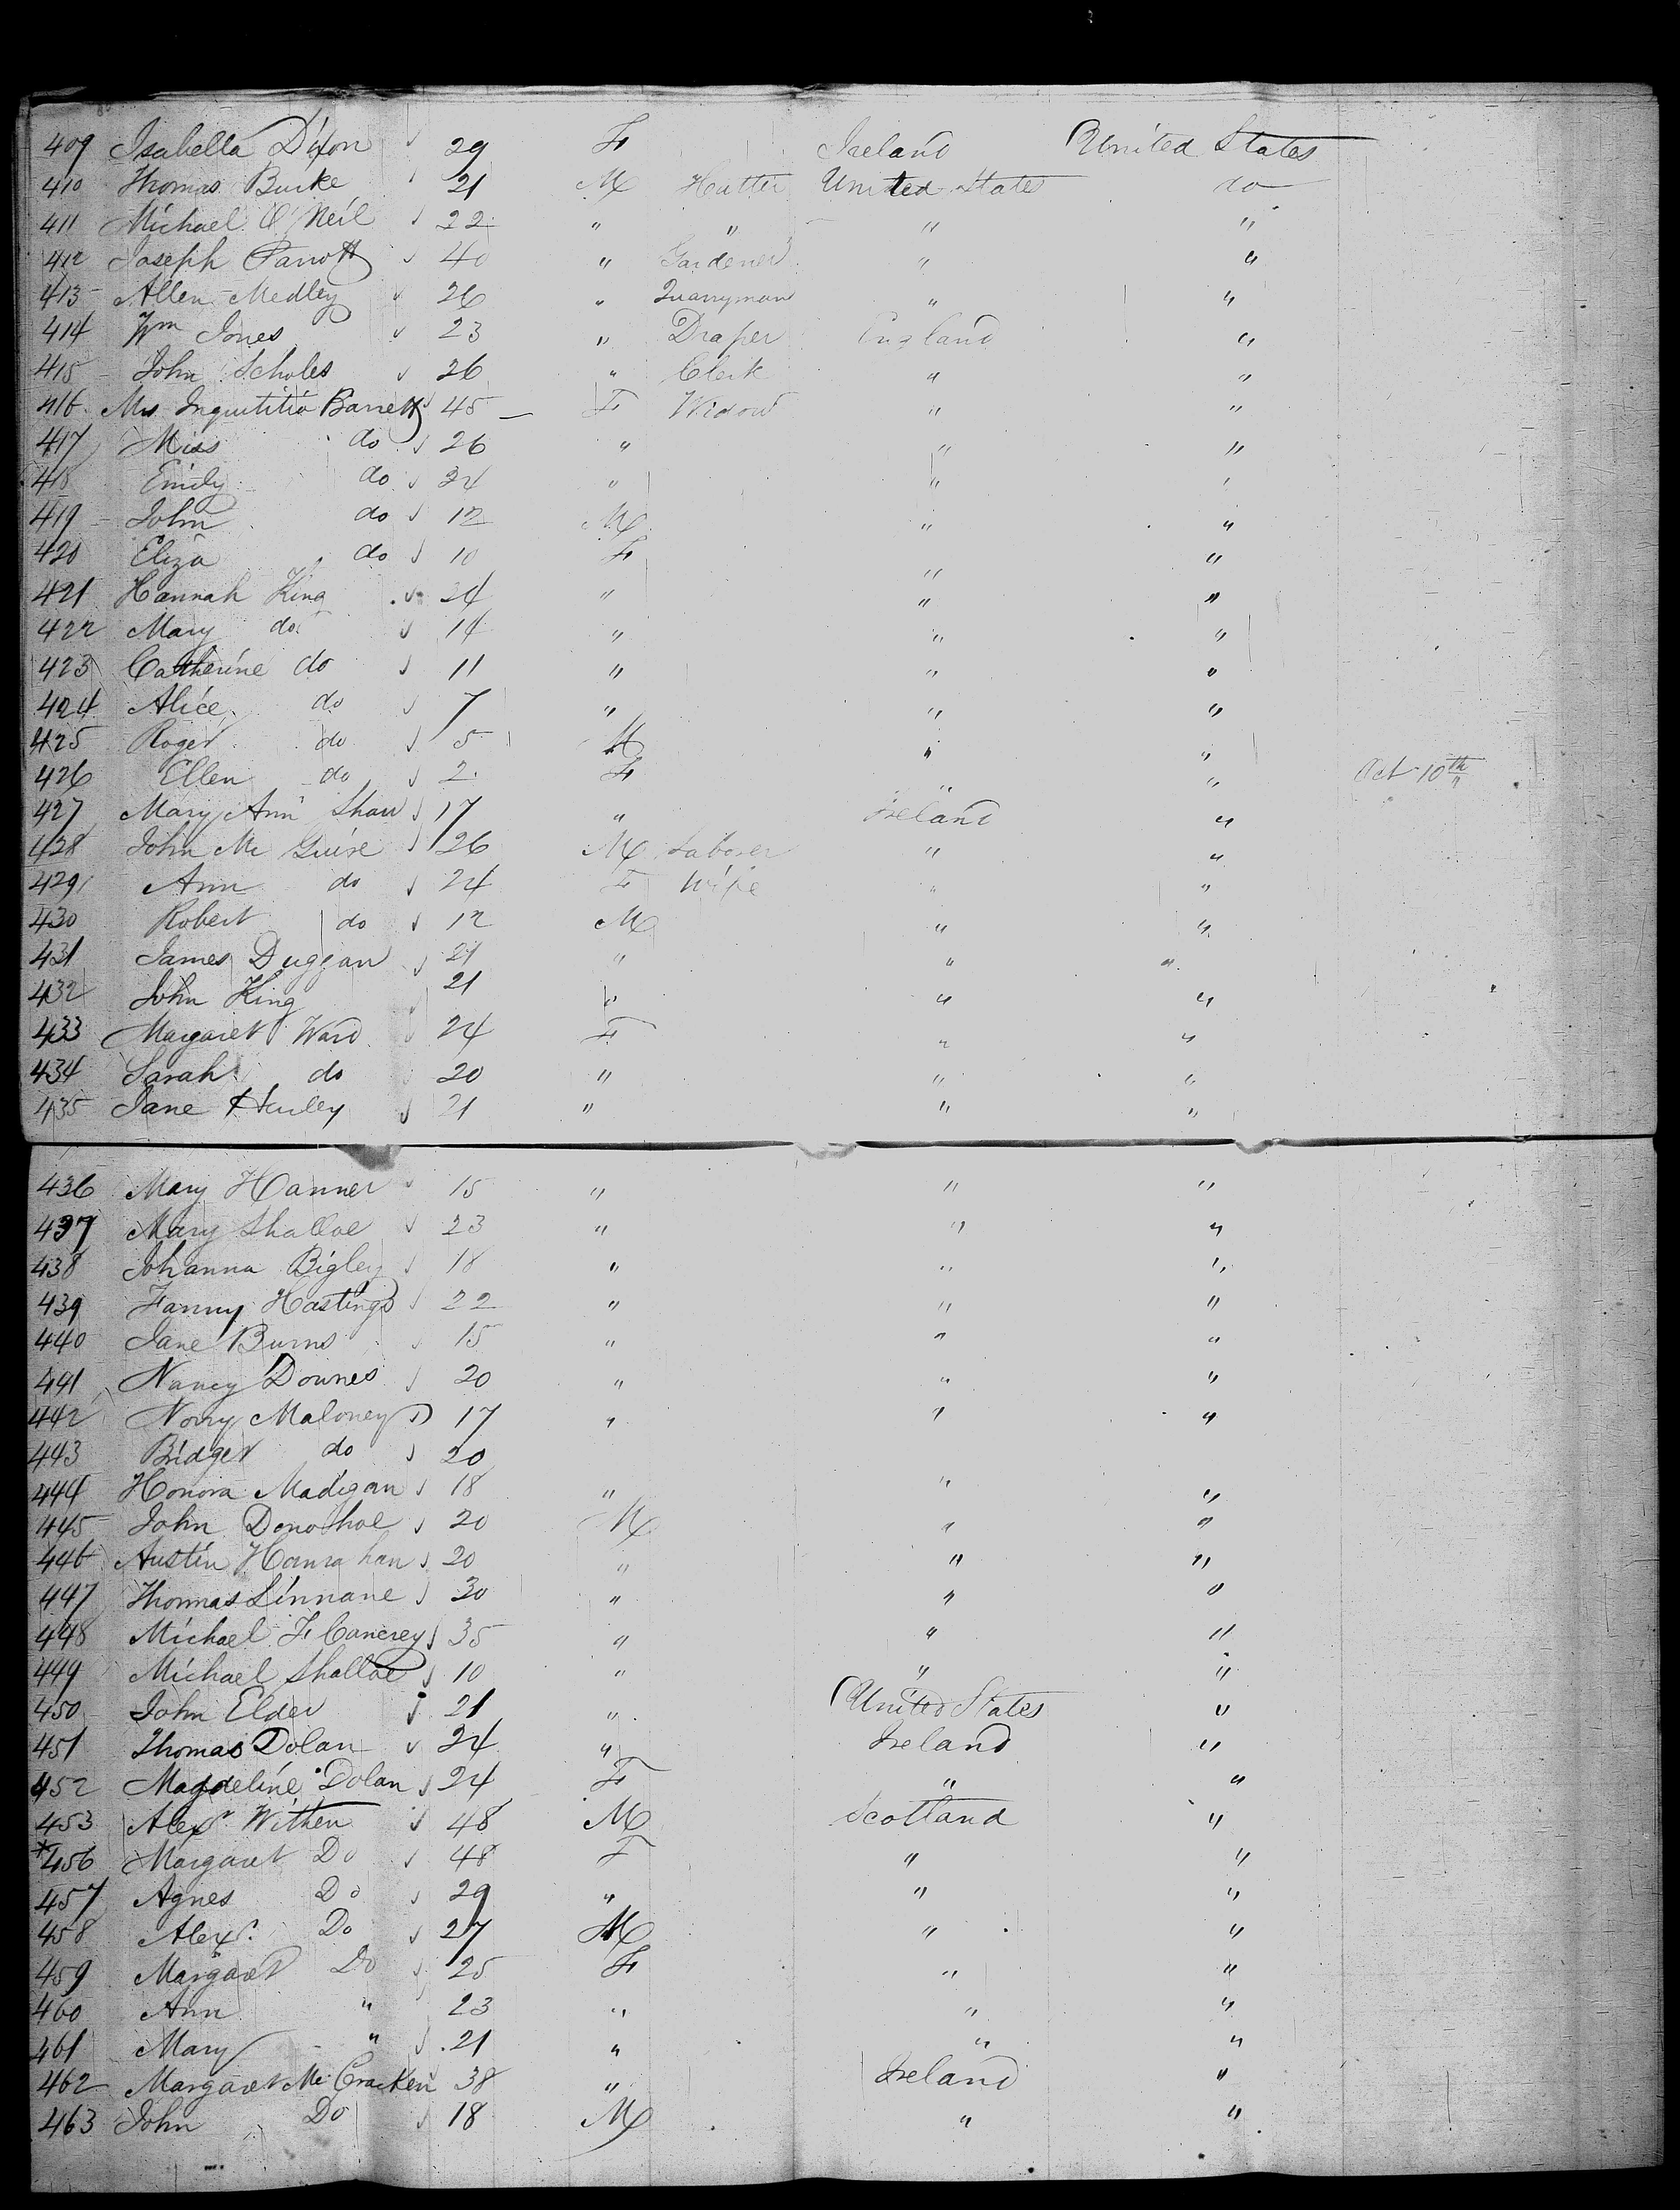 409 Isabella Dixon 29 F Ireland United States
410 Thomas Burke 21 M Hatter United States do
411 Michael O'Neil 22 " " " "
412 Joseph Parrott 40 " Gardener " "
413 Allen Medley 26 " Quarryman " "
414 Wm Jones 23 " Draper England "
415 John Scholes 26 " Clerk " "
416 Mrs Barrett 45 F Widow " "
417 Miss do 26 " " "
418 Emily do 24 " " "
419 John do 12 M " "
420 Eliza do 10 F " "
421 Hannah King 24 " " "
422 Mary do 14 " " "
423 Catherine do 11 " " "
424 Alice do 7 " " "
425 Roger do 5 M " "
426 Ellen do 2 F " " Oct 10th
427 Mary Ann Shaw 17 " Ireland "
428 John Mc Guire 26 M Laborer " "
429 Ann do 24 F Wife " "
430 Robert do 12 M " "
431 James Duggan 21 " " "
432 John King 21 " " "
433 Margaret Ward 24 F " "
434 Sarah do 20 " " "
435 Jane Hurley 21 " " "
436 Mary Hanner 15 " " "
437 Mary Shalloe 23 " " "
438 Johanna Bigley 18 " " "
439 Fanny Hastings 22 " " "
440 Jane Burns 15 " " "
441 Nancy Downes 20 " " "
442 Nory Maloney 17 " " "
443 Bridget do 20
444 Honora Madigan 18 " " "
445 John Donohoe 20 M " "
446 Austin Hanrahan 20 " " "
447 Thomas Linnane 30 " " "
448 Michael 35 " " "
449 Michael Shalloe 10 " " "
450 John Elder 21 " United States "
451 Thomas Dolan 24 " Ireland "
452 Magdeline Dolan 24 F " "
453 Alexr Withen 48 M Scotland "
*456 Margaret Do 48 F " "
457 Agnes Do 29 " " "
458 Alexr Do 27 M " "
459 Margaret Do 25 F " "
460 Ann " 23 " " "
461 Mary " 21 " " "
462 Margaret Mc Cracken 38 " Ireland "
463 John Do 18 M " "